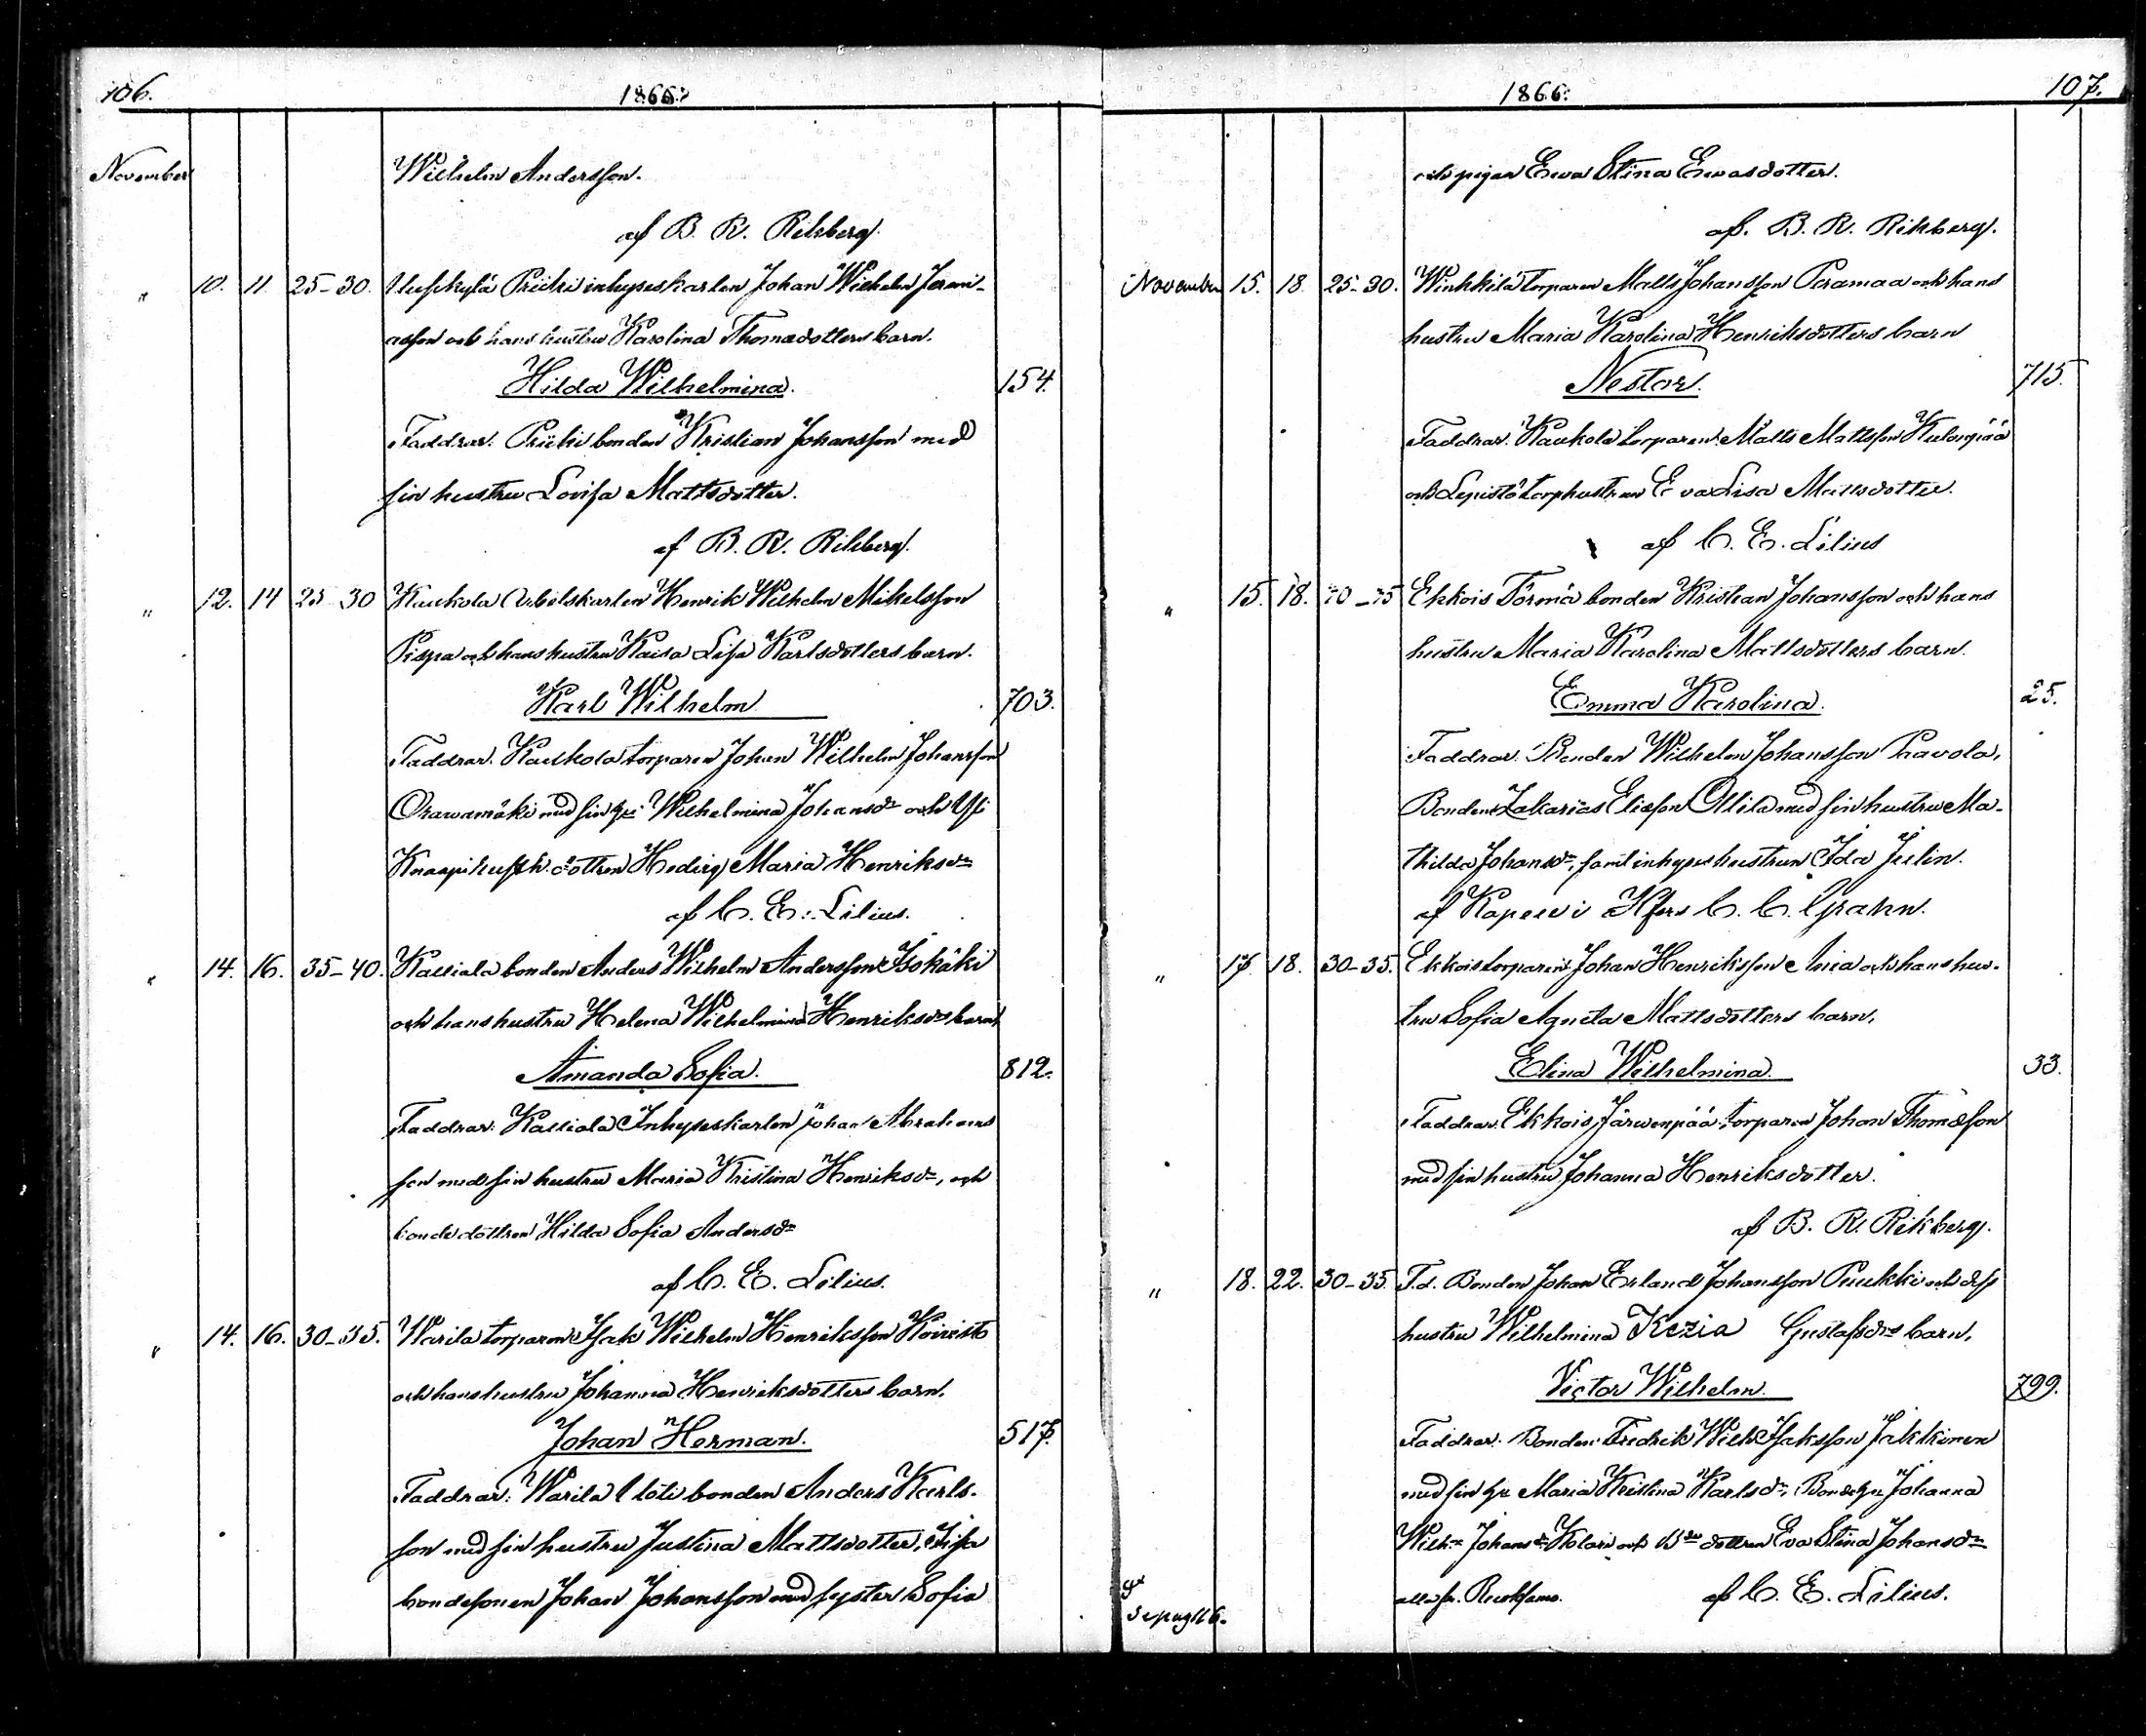 106. 1866.
November Wilhelm Andersson.
af B. R. Rikberg.
" 10. 11. 25-30. Uuskylä Prihti inhyseskarlen Johan Wilhelm Jeremi-
asson och hans hustru Karolina Thomædotters barn.
Hilda Wilhelmina. 154.
Faddrar: bonden Kristian Johansson med
sin hustru Lovisa Mattsdotter.
af B. R. Rikberg.
" 12. 14 25-30 Kaukola Arbetskarlen Henrik Wilhelm Mikelsson
Pispa och hans hustru Kaisa Lisa Karlsdotters barn.
Karl Wilhelm 703.
Faddrar: Kaukola torparen Johan Wilhelm Johansson
Orawamäki med sin hu Wilhelmina Johansdr och
dottren Hedvig Maria Henriksdr
af C. E. Lilius.
" 14. 16. 35-40. Kalliala bonden Anders Wilhelm Andersson Isokäki
och hans hustru Helena Wilhelmina Henriksdrs barn
Amanda Sofia. 812.
Faddrar: Kalliala Inhyseskarlen Johan Abrahams
son med sin hustru Maria Kristina Henriksdr, och
bondedottren Hilda Sofia Andersdr
af C. E. Lilius.
" 14. 16. 30-35. Warila torparen Isak Wilhelm Henriksson Koivisto
och hans hustru Johanna Henriksdotters barn.
Johan Herman. 517.
Faddrar: Warila Uoti bonden Anders Karls-
son med sin hustru Justina Mattsdotter,
bondesonen Johan Johansson med syster Sofia
1866. 107.
och pigan Ewa Stina Ewasdotter.
af B. R. Rikberg.
November 15. 18. 25-30. Winkkilä torparen Matts Johansson Paramaa och hans
hustru Maria Karolina Henriksdotters barn
Nestor. 715.
Faddrar: Kaukola torparen Matts Mattsson Kulonpää
och Lepistö torphustrun Eva Lisa Mattsdotter.
af C. E. Lilius
" 15. 18. 70-75 Ekkois Törmä bonden Kristian Johansson och hans
hustru Maria Karolina Mattsdotters barn.
Emma Karolina. 25.
Faddrar: Bonden Wilhelm Johansson Paavola,
Bonden Zakarias Eliasson Ollila med sin hustru Ma-
thilda Johansdr, samt inhyseshustrun Ida Julin.
af Kapell i Hfors C. C. Grahn.
" 17. 18. 30-35. Ekkois torparen Johan Henriksson Ania och hans hus-
tru Sofia Agneta Mattsdotters barn,
Elina Wilhelmina. 33.
Faddrar: Ekkois Järwenpää torparen Johan Thomæson
med sin hustru Johanna Henriksdotter.
af B. R. Rikberg.
" 18. 22. 30-35. F.d. Bonden Johan Erland Johansson Puukki och dess
hustru Wilhelmina Kezia Gustafsdrs barn,
Victor Wilhelm. 799.
Faddrar: Bonden Fredrik Wilh. Isaksson Jakkinen
med sin hu Maria Kristina Karlsdr, Bondehu Johanna
Wilhna Johansdr Kolari och dottren Eva Stina Johansdr
alla fr. af C. E. Lilius.
Se pag 116.